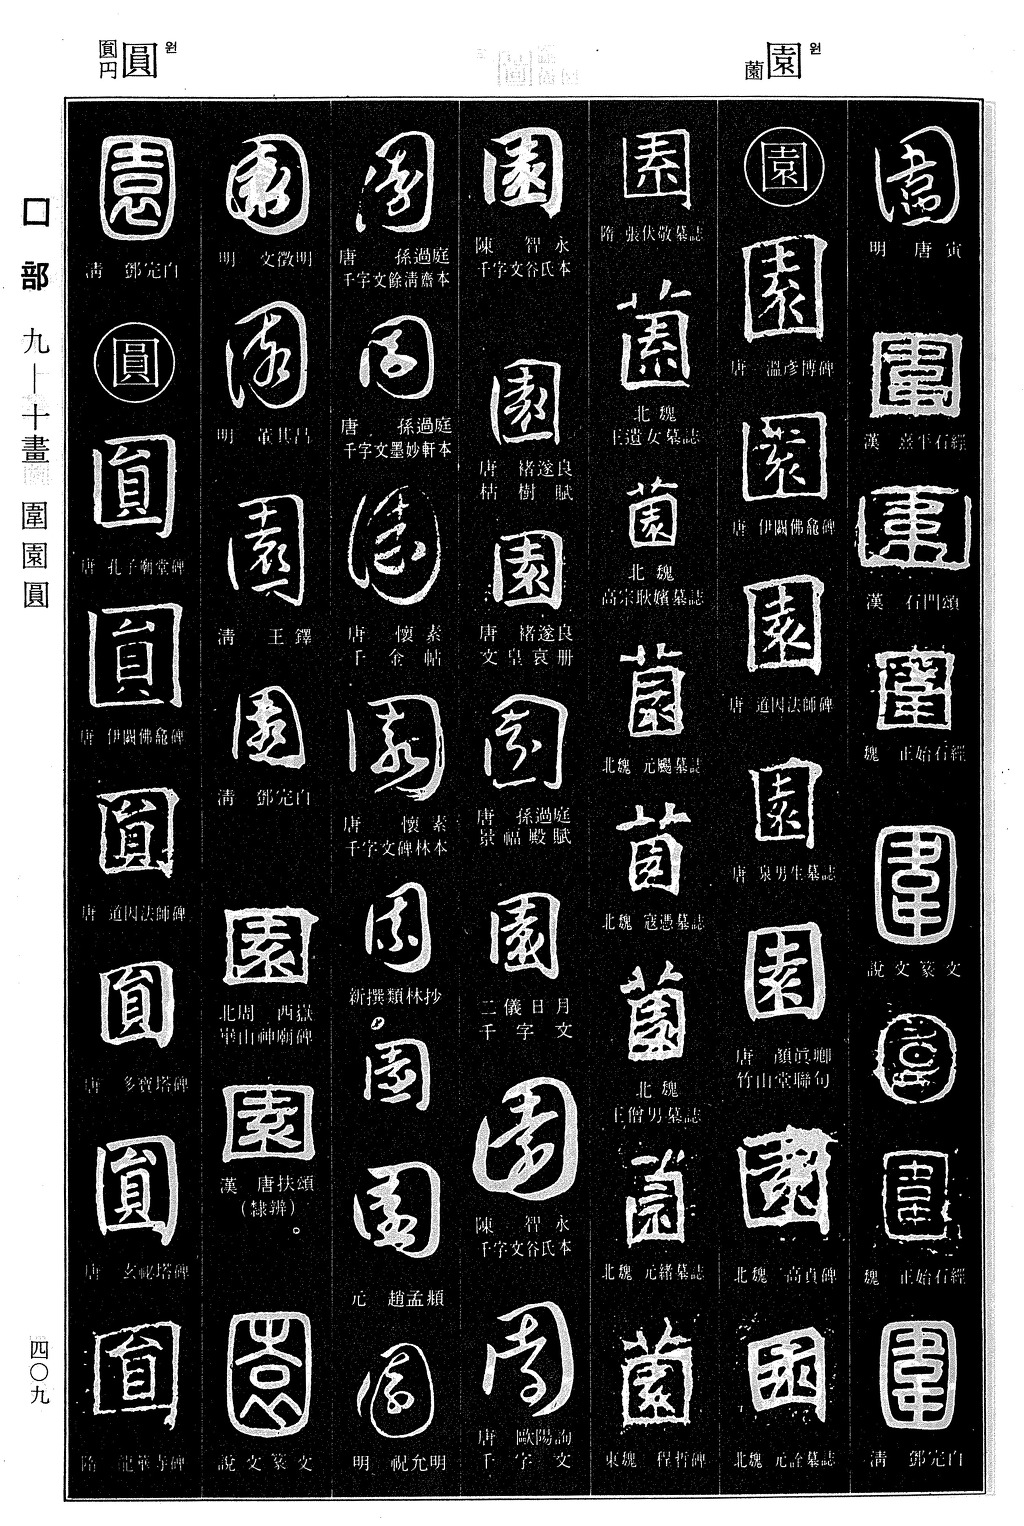 園 원
薗
圓 원
圎
円
口部 九—十畫 圍園圓
四〇九
明 唐寅
漢 熹平石經
漢 石門頌
魏 正始石經
說文篆文
魏 正始石經
清 鄧完白
園
唐 溫彥博碑
唐 伊闕佛龕碑
唐 道因法師碑
唐 泉男生墓誌
唐 顏眞卿
竹山堂聯句
北魏 高貞碑
北魏 元詮墓誌
隋 張伏敬墓誌
北魏
王遺女墓誌
北魏
高宗耿嬪墓誌
北魏 元颺墓誌
北魏 寇憑墓誌
北魏
王僧男墓誌
北魏 元緒墓誌
東魏 程哲碑
陳 智永
千字文谷氏本
唐 褚遂良
枯樹賦
唐 褚遂良
文皇哀册
唐 孫過庭
景福殿賦
二儀日月
千字文
陳 智永
千字文谷氏本
唐 歐陽詢
千字文
唐 孫過庭
千字文餘淸齋本
唐 孫過庭
千字文墨妙軒本
唐 懷素
千金帖
唐 懷素
千字文碑林本
新撰類林抄
元 趙孟頫
明 祝允明
明 文徵明
明 董其昌
淸 王鐸
淸 鄧完白
北周 西嶽
華山神廟碑
漢 唐扶頌
(隸辨)
說文篆文
淸 鄧完白
圓
唐 孔子廟堂碑
唐 伊闕佛龕碑
唐 道因法師碑
唐 多寶塔碑
唐 玄祕塔碑
隋 龍華寺碑